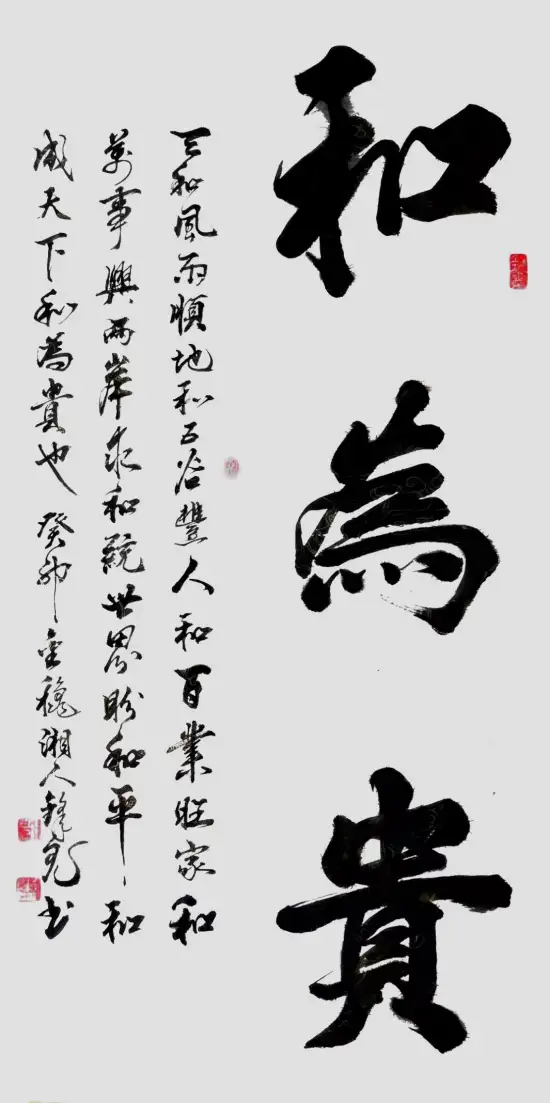 和為貴
天和風雨順地和五谷豐人和百業旺家和
萬事興兩岸求和統世界盼和平和
成天下和為貴也 癸卯金穐湘人鋒书